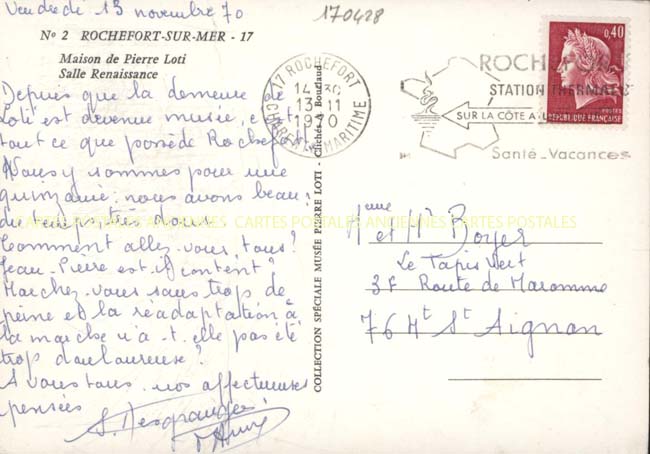 Vendredi 13 novembre 70
170428
Nº 2 ROCHEFORT-SUR-MER - 17
Maison de Pierre Loti
Salle Renaissance
Depuis que la demeure de
Loti est devenue musée, c'est
tout ce que possède Rochefort
Nous y sommes pour une
quinzaine, nous avons beau
du temps très doux
Comment allez-vous tous?
Jean-Pierre est-il content?
Marchez-vous sans trop de
peine et la réadaptation à
la marche n'a-t-elle pas été
trop douloureuse?
A vous tous, nos affectueuses
pensées
S. Desgranges
COLLECTION SPÉCIALE MUSÉE PIERRE LOTI - Clichés A Boutlaud
17 ROCHEFORT
14 30
13-11
1970
CHARENTE MARITIME
ROCHEFORT
STATION THERMALE
SUR LA CÔTE A
Santé-Vacances
0,40
POSTES
REPUBLIQUE FRANÇAISE
Mme et Mr Boyer
Le Tapis Vert
3F Route de Maromme
76 Mt St Aignan
CARTES POSTALES ANCIENNES CARTES POSTALES ANCIENNES CARTES POSTALES